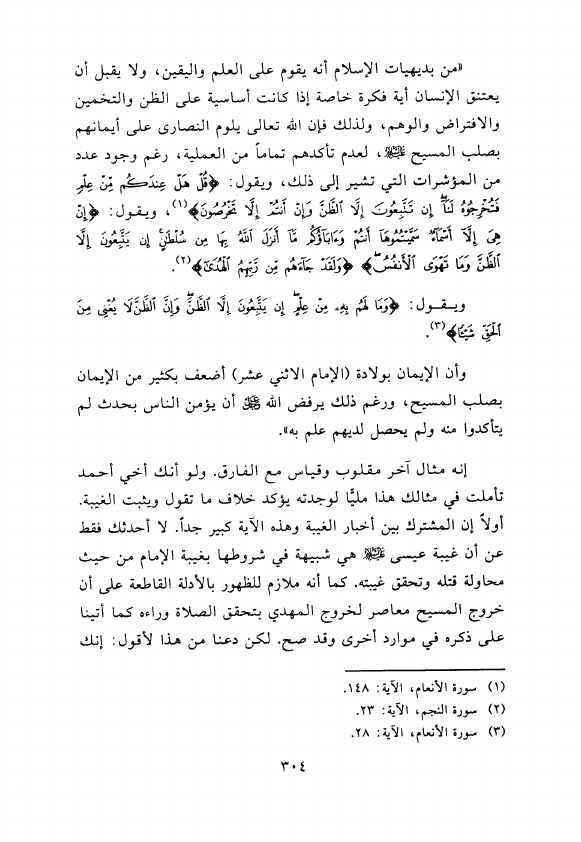 «من بديهيات الإسلام أنه يقوم على العلم واليقين، ولا يقبل أن
يعتنق الإنسان أية فكرة خاصة إذا كانت أساسية على الظن والتخمين
والافتراض والوهم، ولذلك فإن الله تعالى يلوم النصارى على أيمانهم
بصلب المسيح ﵇، لعدم تأكدهم تماماً من العملية، رغم وجود عدد
من المؤشرات التي تشير إلى ذلك، ويقول: ﴿قُلْ هَلْ عِندَكُم مِّنْ عِلْمٍ
فَتُخْرِجُوهُ لَنَا إِن تَتَّبِعُونَ إِلَّا الظَّنَّ وَإِنْ أَنتُمْ إِلَّا تَخْرُصُونَ﴾(١)، ويقول: ﴿إِنْ
هِيَ إِلَّا أَسْمَاءٌ سَمَّيْتُمُوهَا أَنتُمْ وَءَابَاؤُكُم مَّا أَنزَلَ اللَّهُ بِهَا مِن سُلْطَانٍ إِن يَتَّبِعُونَ إِلَّا
الظَّنَّ وَمَا تَهْوَى الْأَنفُسُ﴾ ﴿وَلَقَدْ جَاءَهُم مِّن رَّبِّهِمُ الْهُدَى﴾(٢).
ويـقـول: ﴿وَمَا لَهُم بِهِ مِنْ عِلْمٍ إِن يَتَّبِعُونَ إِلَّا الظَّنَّ وَإِنَّ الظَّنَّ لَا يُغْنِي مِنَ
الْحَقِّ شَيْئًا﴾(٣).
وأن الإيمان بولادة (الإمام الاثني عشر) أضعف بكثير من الإيمان
بصلب المسيح، ورغم ذلك يرفض الله ﷻ أن يؤمن الناس بحدث لم
يتأكدوا منه ولم يحصل لديهم علم به».
إنه مثال آخر مقلوب وقياس مع الفارق. ولو أنك أخي أحمد
تأملت في مثالك هذا مليًّا لوجدته يؤكد خلاف ما تقول ويثبت الغيبة.
أولاً إن المشترك بين أخبار الغيبة وهذه الآية كبير جداً. لا أحدثك فقط
عن أن غيبة عيسى ﵇ هي شبيهة في شروطها بغيبة الإمام من حيث
محاولة قتله وتحقق غيبته. كما أنه ملازم للظهور بالأدلة القاطعة على أن
خروج المسيح معاصر لخروج المهدي بتحقق الصلاة وراءه كما أتينا
على ذكره في موارد أخرى وقد صح. لكن دعنا من هذا لأقول: إنك
(١) سورة الأنعام، الآية: ١٤٨.
(٢) سورة النجم، الآية: ٢٣.
(٣) سورة الأنعام، الآية: ٢٨.
٣٠٤